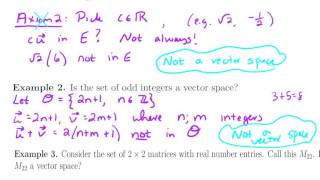 Axiom 2: Pick c∈ℝ, (e.g. √2, -½)
c u⃗ in E ? Not always!
√2 (6) not in E
Not a vector space
Example 2. Is the set of odd integers a vector space?
Let O = { 2n+1, n∈ℤ } 3+5=8
u⃗ = 2n+1, v⃗ = 2m+1 where n, m integers
u⃗ + v⃗ = 2(n+m+1) not in O
Not a vector space
Example 3. Consider the set of 2 × 2 matrices with real number entries. Call this M₂₂.
M₂₂ a vector space?